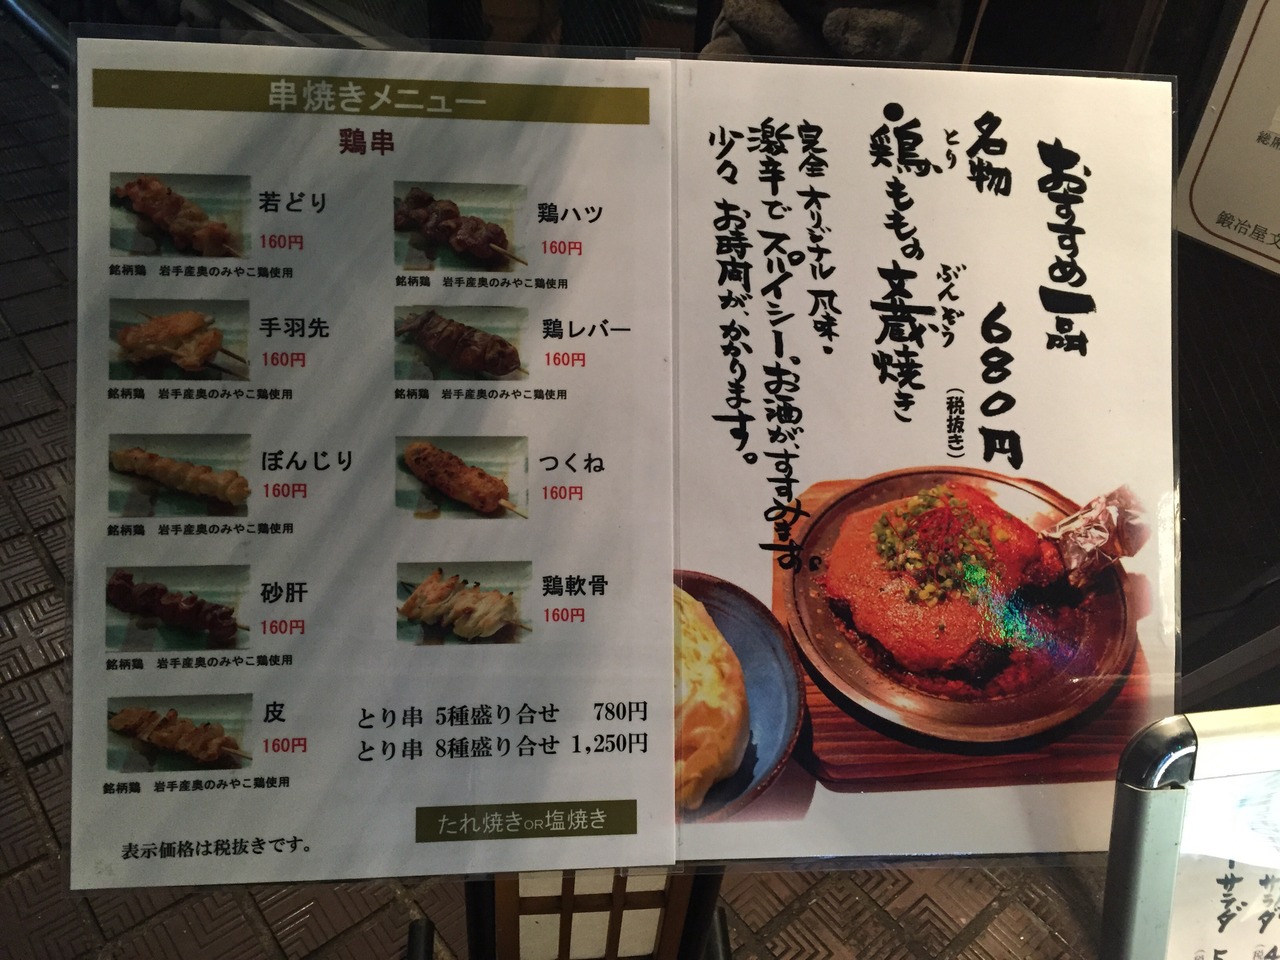 串焼きメニュー
鶏串
若どり
160円
銘柄鶏 岩手産奥のみやこ鶏使用
手羽先
160円
銘柄鶏 岩手産奥のみやこ鶏使用
ぼんじり
160円
銘柄鶏 岩手産奥のみやこ鶏使用
砂肝
160円
銘柄鶏 岩手産奥のみやこ鶏使用
皮
160円
銘柄鶏 岩手産奥のみやこ鶏使用
鶏ハツ
160円
銘柄鶏 岩手産奥のみやこ鶏使用
鶏レバー
160円
銘柄鶏 岩手産奥のみやこ鶏使用
つくね
160円
鶏軟骨
160円
とり串 5種盛り合せ 780円
とり串 8種盛り合せ 1,250円
たれ焼きOR塩焼き
表示価格は税抜きです。
おすすめ一品
名物 680円
(税抜き)
とり ぶんぞう
●鶏ももの文蔵焼き
完全オリジナル風味。
激辛でスパイシー、お酒が、すすみます。
少々お時間が、かかります。
鍛冶屋文
サラダ
サラダ